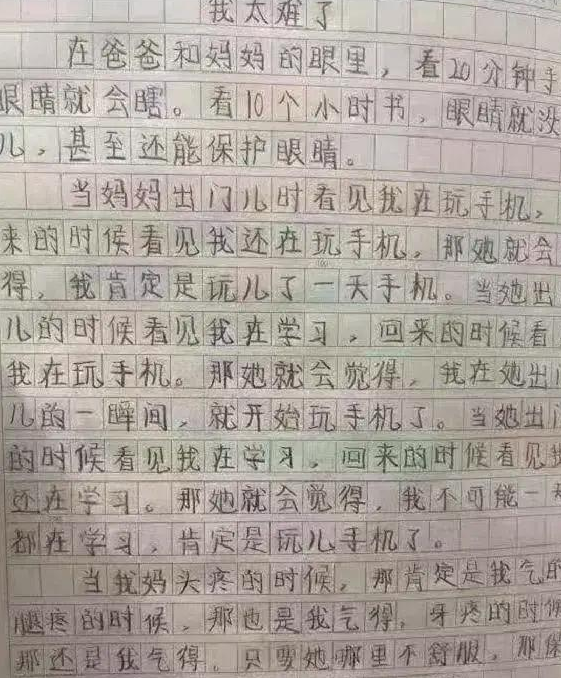 我太难了
在爸爸和妈妈的眼里，看20分钟手
眼睛就会瞎。看10个小时书，眼睛就没
儿，甚至还能保护眼睛。
当妈妈出门儿时看见我在玩手机，
来的时候看见我还在玩手机。那她就会
得，我肯定是玩儿了一天手机。当她出
儿的时候看见我在学习，回来的时候看
我在玩手机。那她就会觉得，我在她出门
儿的一瞬间，就开始玩手机了。当她出门
的时候看见我在学习，回来的时候看见我
还在学习。那她就会觉得，我不可能一天
都在学习，肯定是玩儿手机了。
当我妈头疼的时候，那肯定是我气的
腿疼的时候，那也是我气得，牙疼的时候
那还是我气得，只要她哪里不舒服，那